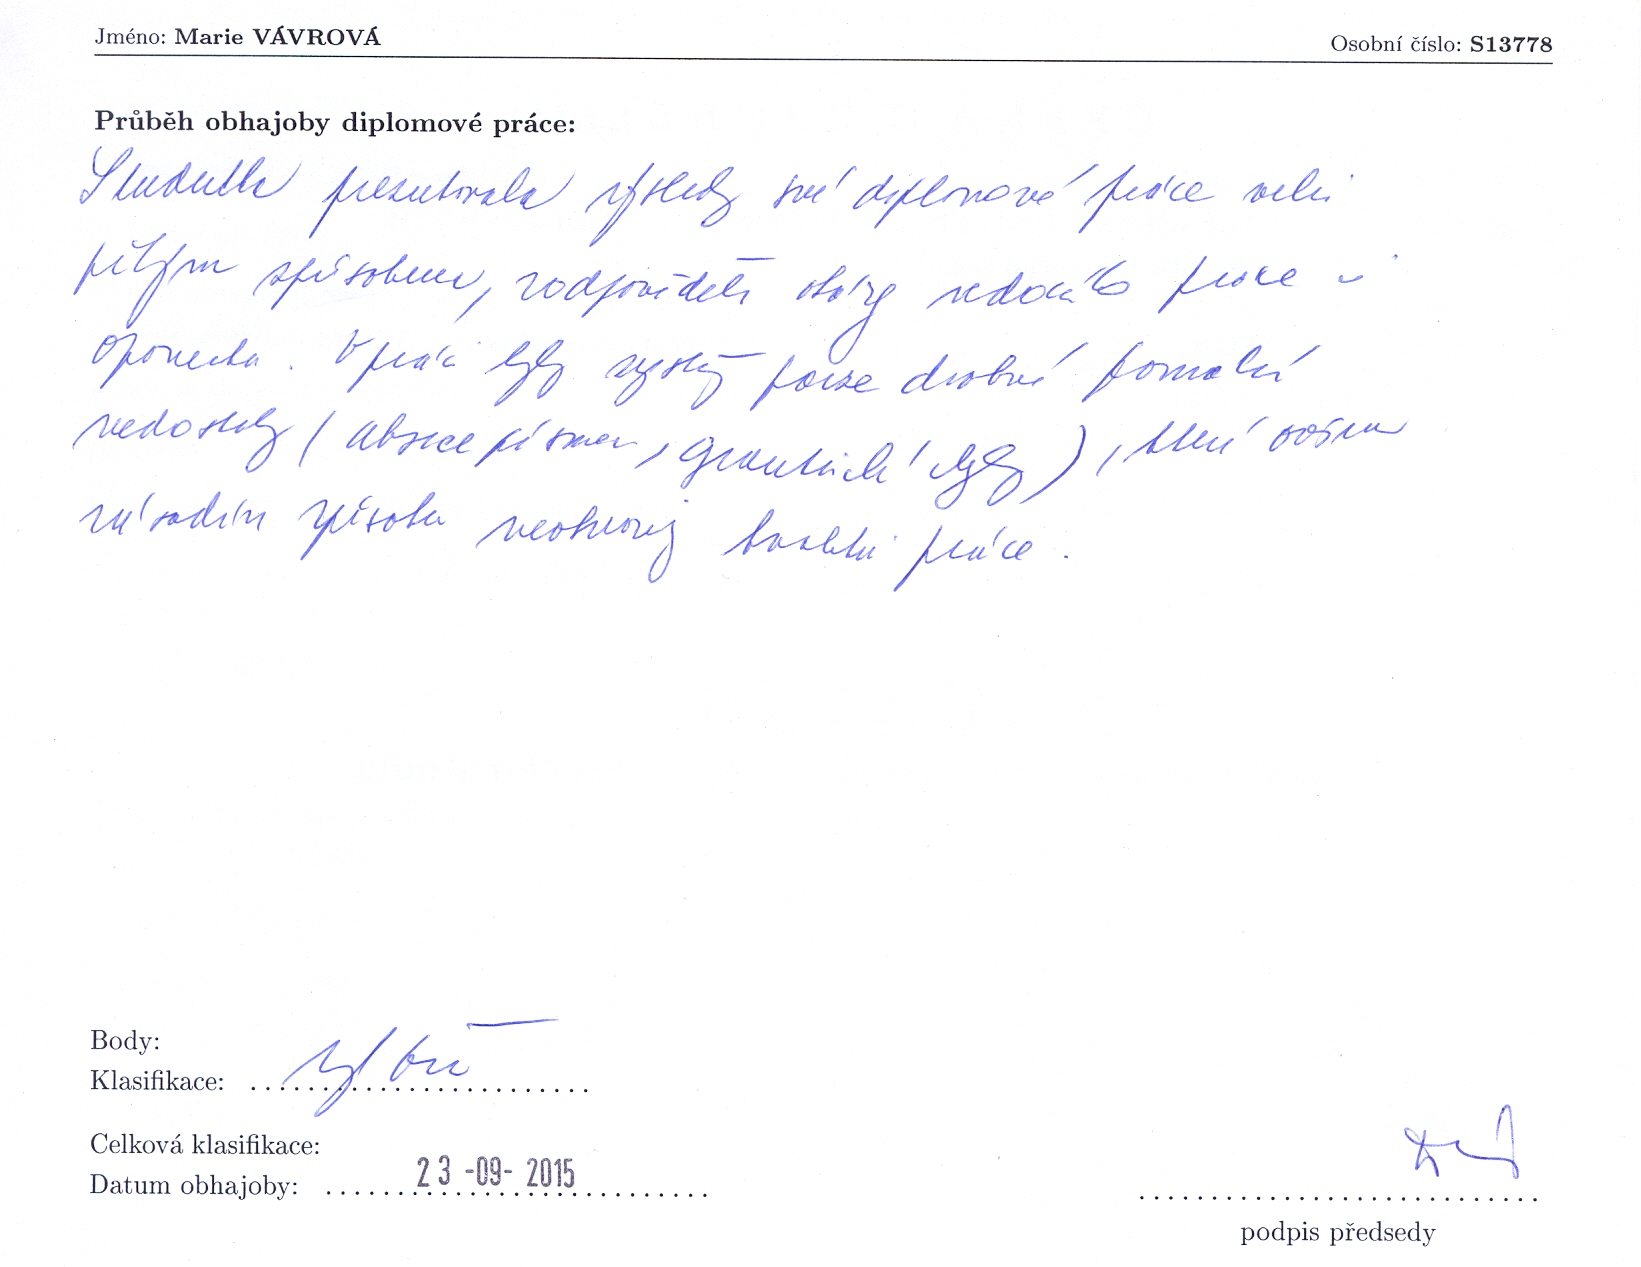 Jméno: Marie VÁVROVÁ Osobní číslo: S13778
Průběh obhajoby diplomové práce:
Studentka prezentovala výsledky své diplomové práce velmi
pěkným způsobem, zodpověděla otázky vedoucího práce i
oponenta. V práci byly pouze drobné formální
nedostatky (absence písmen, gramatické chyby), které ovšem
zásadním způsobem neovlivňují kvalitu práce.
Body:
Klasifikace: výborně
Celková klasifikace:
Datum obhajoby: 23-09-2015
podpis předsedy